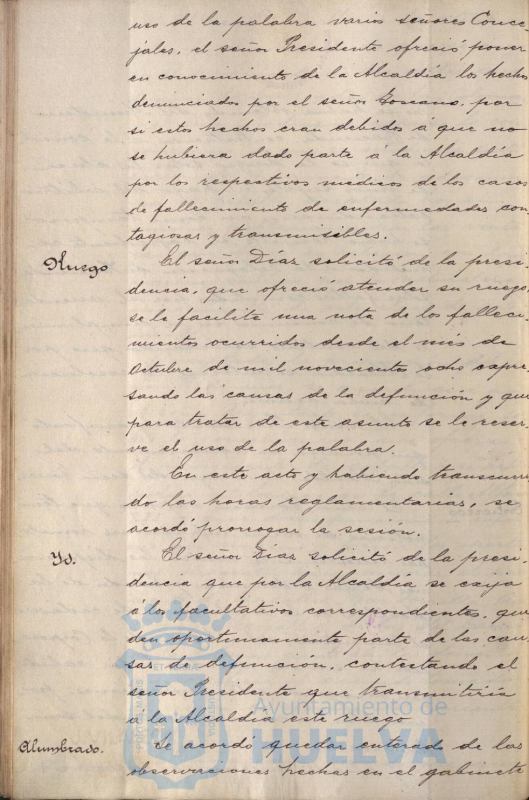 uso de la palabra varios señores Conce-
jales, el señor Presidente ofreció poner
en conocimiento de la Alcaldía los hechos
denunciados por el señor Soriano, por
si estos hechos eran debidos á que no
se hubiera dado parte á la Alcaldía
por los respectivos médicos de los casos
de fallecimiento de enfermedades con
tagiosas y transmisibles.
Ruego
El señor Díaz solicitó de la presi-
dencia, que ofreció atender su ruego,
se le facilite una nota de los falleci-
mientos ocurridos desde el mes de
Octubre de mil novecientos ocho expre-
sando las causas de la defunción y que
para tratar de este asunto se le reser-
ve el uso de la palabra.
En este acto y habiendo transcurri
do las horas reglamentarias, se
acordó prorrogar la sesión.
Yd.
El señor Díaz solicitó de la presi-
dencia que por la Alcaldía se exija
á los facultativos correspondientes, que
den oportunamente parte de las cau-
sas de defunción, contestando el
señor Presidente que transmitiría
á la Alcaldía este ruego
Alumbrado.
Se acordó quedar enterado de las
observaciones hechas en el gabinete
Ayuntamiento de
HUELVA